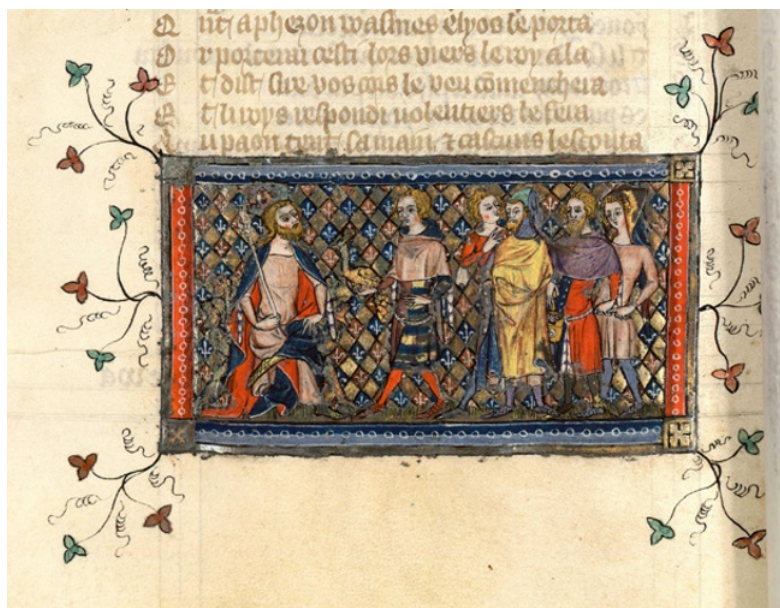 Q ant aphezon wasmes elyos le porta
O r porterai cesti lors viers le roy ala
E t dist sire vos cus le veu comenchera
E t li roys respondi volentiers le fera
u paon tent sa main & cascuns lescouta